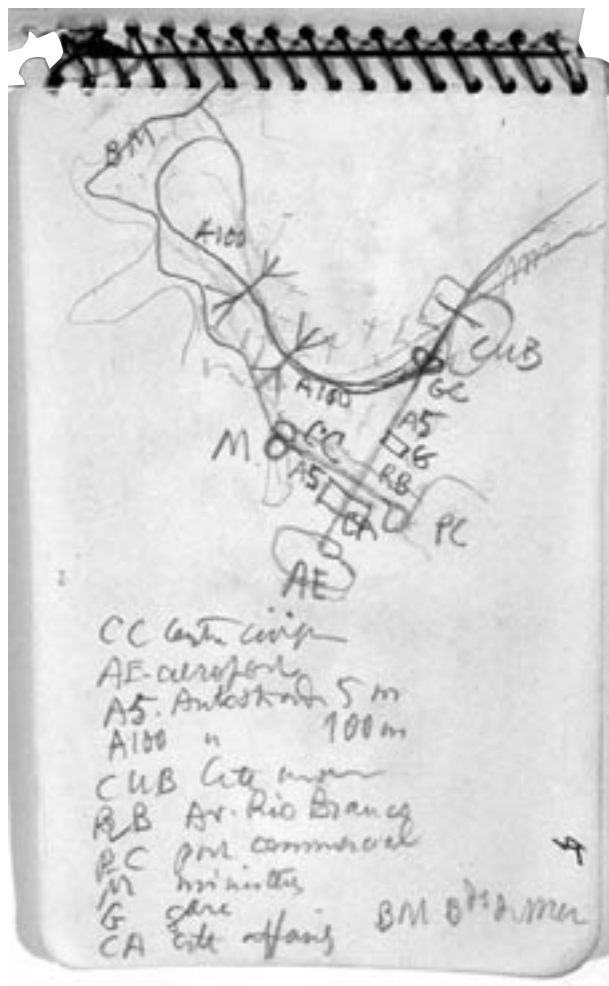 BM
A100
CUB
A100
GC
A5
M.
CC
G
A5
RB
CA
PC
AE
CC Centre civique
AE. aeroport
A5. Autostrada 5 m
A100 " 100 m
CUB Cité
RB Av. Rio Branco
PC port commercial
M ministères
G gare
CA cité affaires
BM Bd de Mer